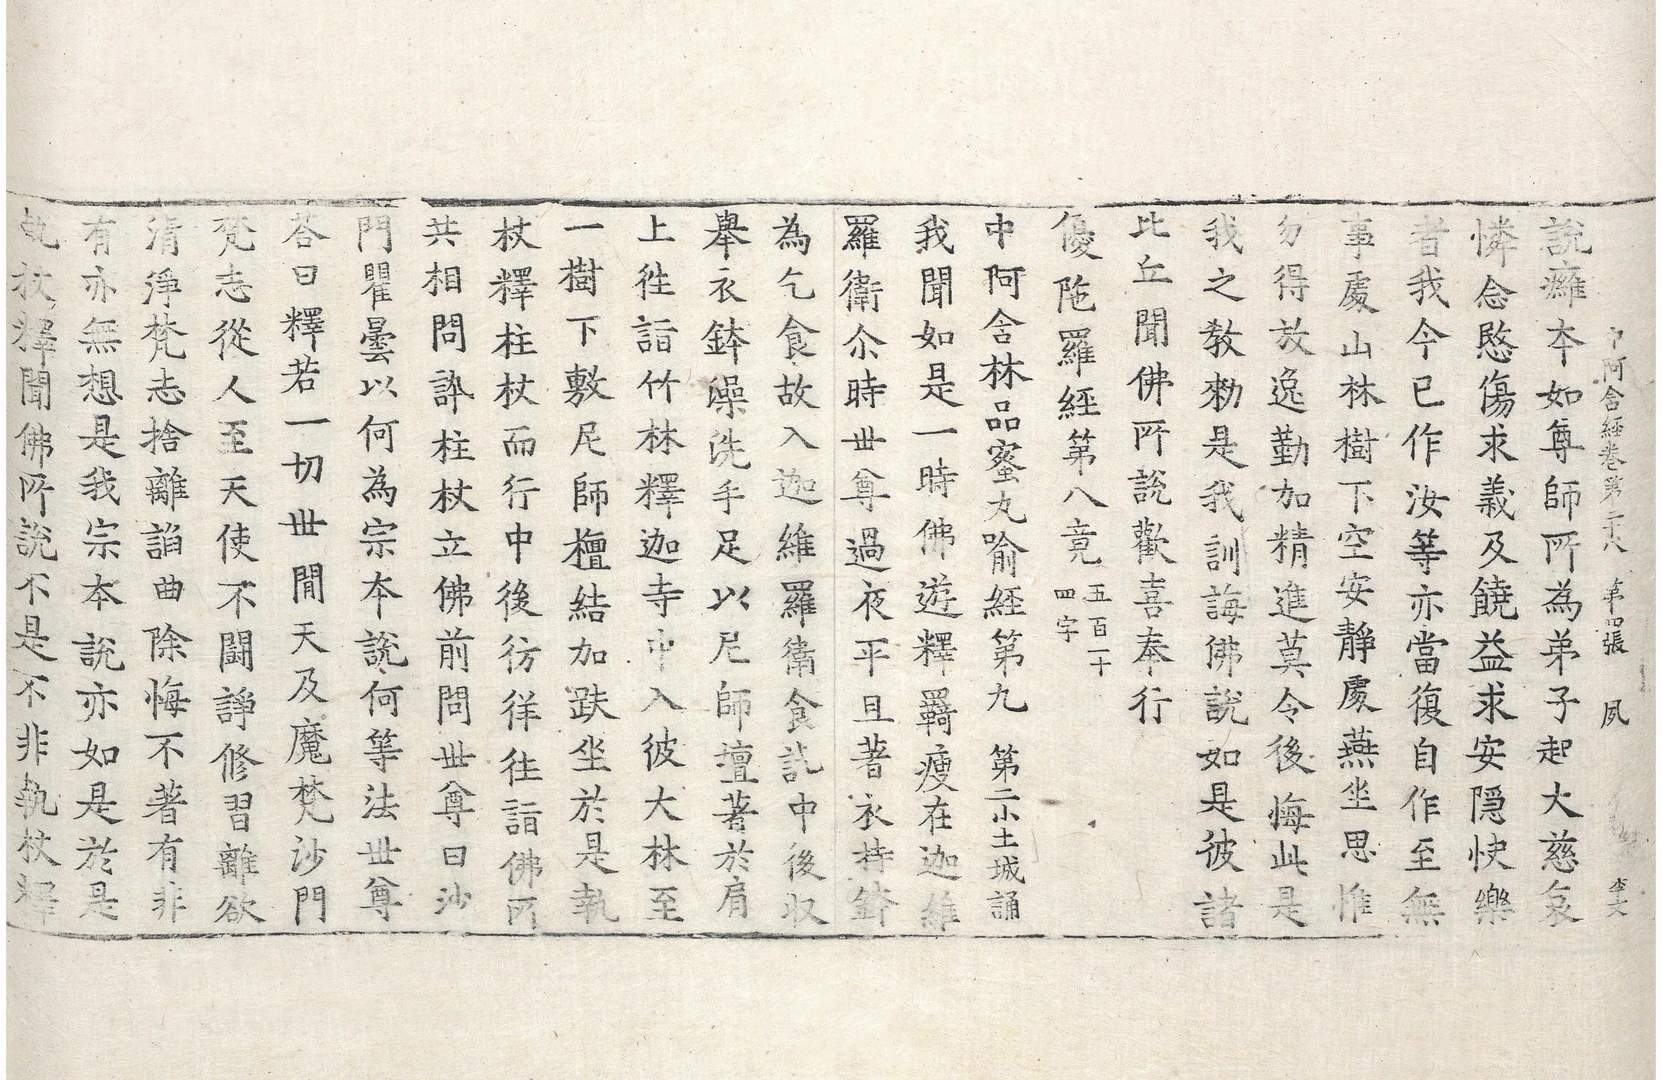 中阿含經卷第二十八 第十四張 夙 李文
說癰本如尊師所為弟子起大慈哀
憐念愍傷求義及饒益求安隠快樂
者我今已作汝等亦當復自作至無
事處山林樹下空安靜處燕坐思惟
勿得放逸勤加精進莫令後悔此是
我之教勑是我訓誨佛說如是彼諸
比丘聞佛所說歡喜奉行
優陁羅經第八竟 五百一十四字
中阿含林品蜜丸喻經第九 第二小土城誦
我聞如是一時佛遊釋羇瘦在迦維
羅衛尒時世尊過夜平旦著衣持鉢
為乞食故入迦維羅衛食訖中後収
舉衣鉢澡洗手足以尼師壇著於肩
上徃詣竹林釋迦寺中入彼大林至
一樹下敷尼師檀結加趺坐於是執
杖釋柱杖而行中後彷徉往詣佛所
共相問訊柱杖立佛前問世尊曰沙
門瞿曇以何為宗本說何等法世尊
荅曰釋若一切世間天及魔梵沙門
梵志從人至天使不鬪諍修習離欲
清淨梵志捨離諂曲除悔不著有非
有亦無想是我宗本說亦如是於是
執杖釋聞佛所說不是不非執杖釋